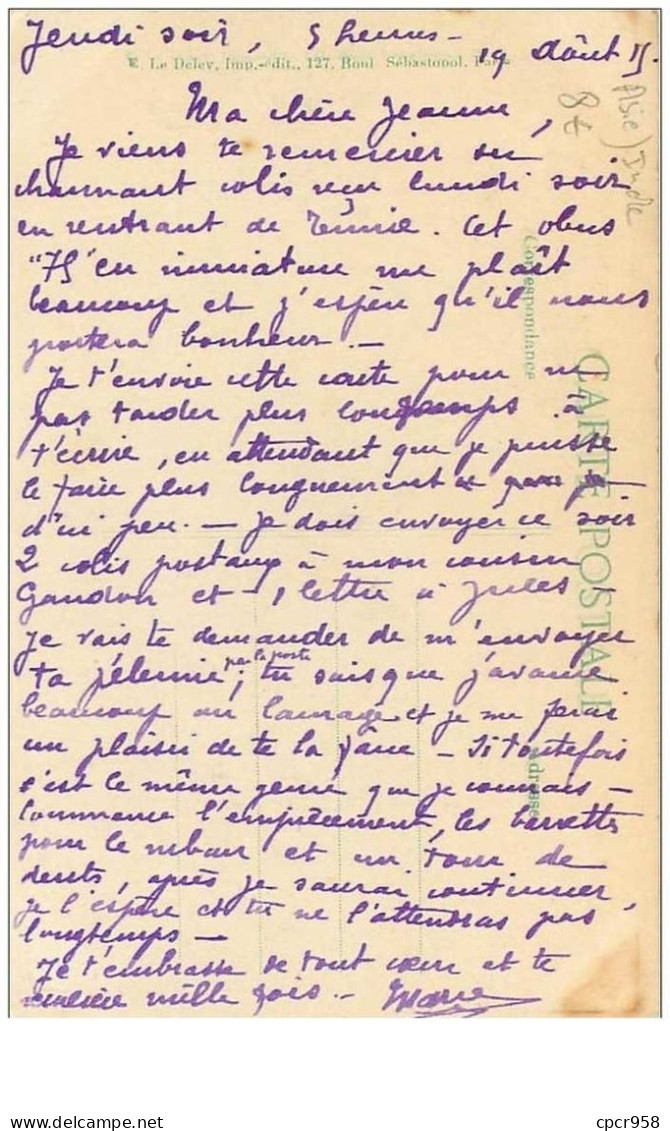 Jeudi soir, 5 heures - 19 Août 15.
E. Le Deley, Imp.-édit., 127, Boul Sébastopol, Paris
Asie) Inde
8 €
Ma chère Jeanne,
Je viens te remercier du
charmant colis reçu lundi soir
en rentrant de . Cet obus
"75" en miniature me plaît
beaucoup et j'espère qu'il nous
portera bonheur. -
Je t'envoie cette carte pour ne
pas tarder plus longtemps à
t'écrire, en attendant que je puisse
le faire plus longuement
d'ici peu. - Je dois envoyer ce soir
2 colis postaux à mon cousin
Gandon et 1 lettre à Jules -
Je vais te demander de m'envoyer
ta pélerine par la poste ; tu sais que j'avance
beaucoup un  et je me ferai
un plaisir de te la faire - Si toutefois
c'est le même genre que je connais -
Commence l'empiècement, les barrettes
pour le  et un tour de
dents, après je saurai continuer,
je l'espère et tu ne l'attendras pas
longtemps -
Je t'embrasse de tout cœur et te
remercie mille fois. - Marie
Correspondance
CARTE POSTALE
Adresse
cpcr958